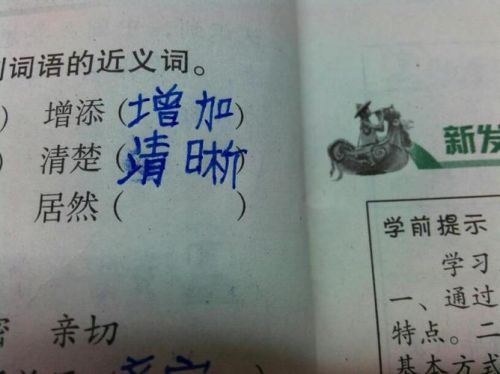 词语的近义词。
) 增添 (增加)
) 清楚 (清晰)
居然 ( )
密 亲切
新发
学前提示
学习
一、通过
特点。二
基本方式